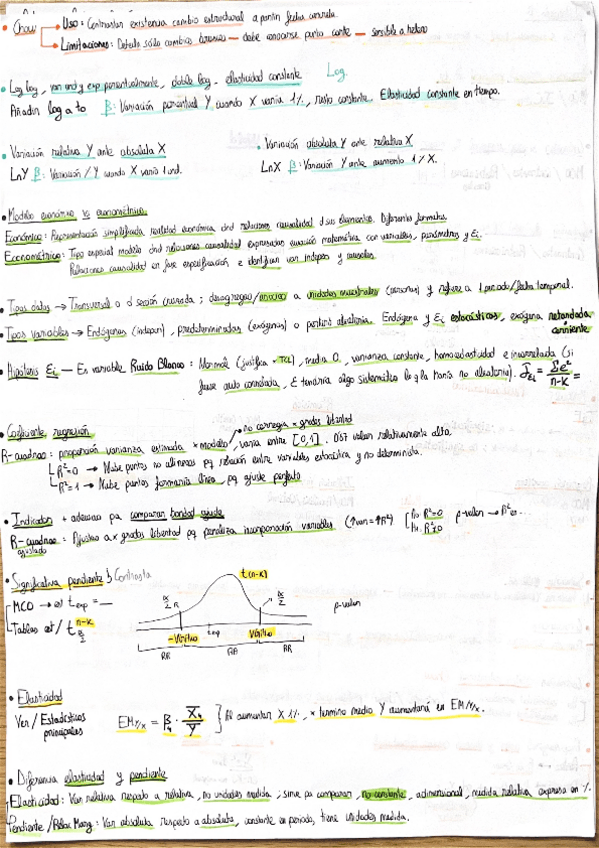 • Chow → Uso: Contrastan existencia cambio estructural a partir fecha concreta.
→ Limitaciones: Detecta sólo cambios bruscos — debe conocerse punto corte — sensible a hetero
• Log log, van end y exp porcentualmente, doble log - elasticidad constante Log.
Añadir log a to β: Variación porcentual Y cuando X varía 1%, resto constante. Elasticidad constante en tiempo.
• Variación relativa Y ante absoluta X
LnY β: Variación % Y cuando X varía 1 und.
• Variación absoluta Y ante relativa X
LnX β: Variación Y ante aumento 1% X.
• Modelo económico vs econométrico.
Económico: Representación simplificada realidad económica dnd relaciones causalidad d sus elementos. Diferentes formatos.
Econométrico: Tipo especial modelo dnd relaciones causalidad expresadas ecuación matemática con variables, parámetros y Ei.
Relaciones causalidad en fase especificación e identifican van indepes y
• Tipos datos → Transversal o d sección cruzada; desagregao a unidades muestrales (personas) y refiere a 1 periodo/fecha temporal.
• Tipos variables → Endógenas (indepen), predeterminadas (exógenas) o perturb aleatoria. Endógena y Ei estocásticos, exógena retardada, corriente
• Hipótesis Ei — Es variable Ruido Blanco: Normal (justifica • TCL), media 0, varianza constante, homocedasticidad e incorrelada (si
fuese auto correlada, E tendría algo sistemático lo q la haría no aleatoria). Σe² / n-k =
• Coeficiente regresión
R-cuadrao: proporción varianza estimada × modelo, varía entre [0,1]. OJO valen relativamente alta.
→ no corregia × grados libertad
R²=0 → Nube puntos no alineaos pq relación entre variables estocástica y no determinista.
R²=1 → Nube puntos formaría línea, pq ajuste perfecto
• Indicador + adecuao pa comparar bondad ajuste
R-cuadrao ajustado = Ajustao a × grados libertad pq penaliza incorporación variables (↑van=↑R²) [H0: R²=0 H1: R²≠0 p-valor → R²=...
• Significativa pendiente β Contrasta
MCO → est t exp = —
Tablas est / t n-k α/2
t(n-k)
α/2 R
α/2
p-valor
-Vcrítico t exp Vcrítico
RR RA RR
• Elasticidad
Ver / Estadísticos principales
EM Y/X = β4 · X̄4 / Ȳ } Al aumentar X 1%, × termino medio Y aumentará en EM Y/X.
• Diferencia elasticidad y pendiente
Elasticidad: Van relativa respecto a relativa, no unidades medida; sirve pa comparar, no constante, adimensional, medida relativa expresa en %.
Pendiente / Relac Marg: Van absoluta respecto a absoluta, constante en periodo, tiene unidades medida.